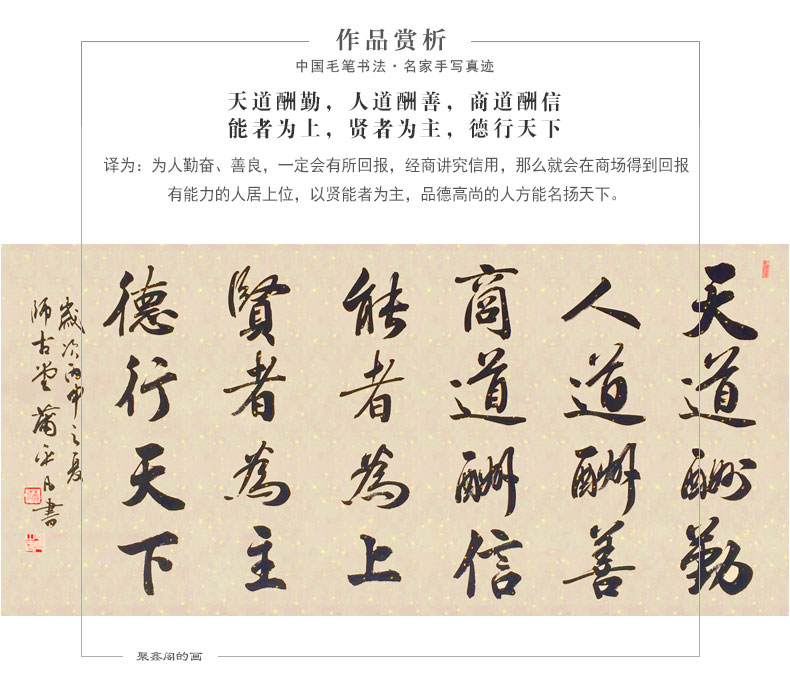 作品赏析
中国毛笔书法·名家手写真迹
天道酬勤，人道酬善，商道酬信
能者为上，贤者为主，德行天下
译为：为人勤奋、善良，一定会有所回报，经商讲究信用，那么就会在商场得到回报
有能力的人居上位，以贤能者为主，品德高尚的人方能名扬天下。
天道酬勤
人道酬善
商道酬信
能者為上
賢者為主
德行天下
歲次丙申之夏
師古堂蕭平凡書
聚鑫阁的画